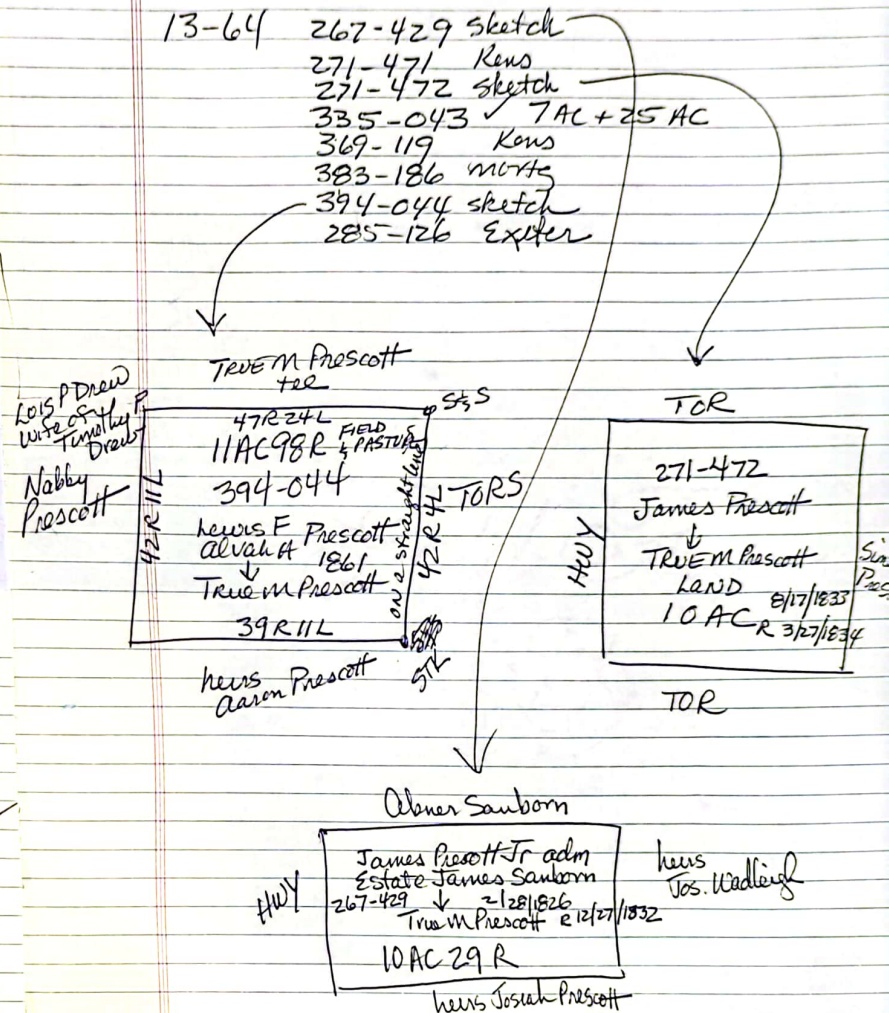 13-64 267-429 sketch
271-471 Kens
271-472 sketch
335-043 ✓ 7AC + 25 AC
369-119 Kens
383-186 mortg
394-044 sketch
285-126 Exeter
TRUE M Prescott
tel
Lois P Drew
wife of
Timothy
Drew
Nabby
Prescott
42R 11L
47R 24L
11AC 98R FIELD
& PASTURE
394-044
Lewis F
Alvah A Prescott
1861
↓
True M Prescott
39R 11L
on a straight line
42R 4L
S&S
TORS
STL
heirs
Aaron Prescott
TOR
HWY
271-472
James Prescott
↓
TRUE M Prescott
LAND
10 AC 8/17/1833
R 3/27/1834
TOR
Abner Sanborn
HWY
James Presott Jr adm
Estate James Sanborn
267-429 ↓ 2/28/1826
True M Prescott R 12/27/1832
10AC 29 R
heirs
Jos. Wadleigh
heirs Josiah Prescott